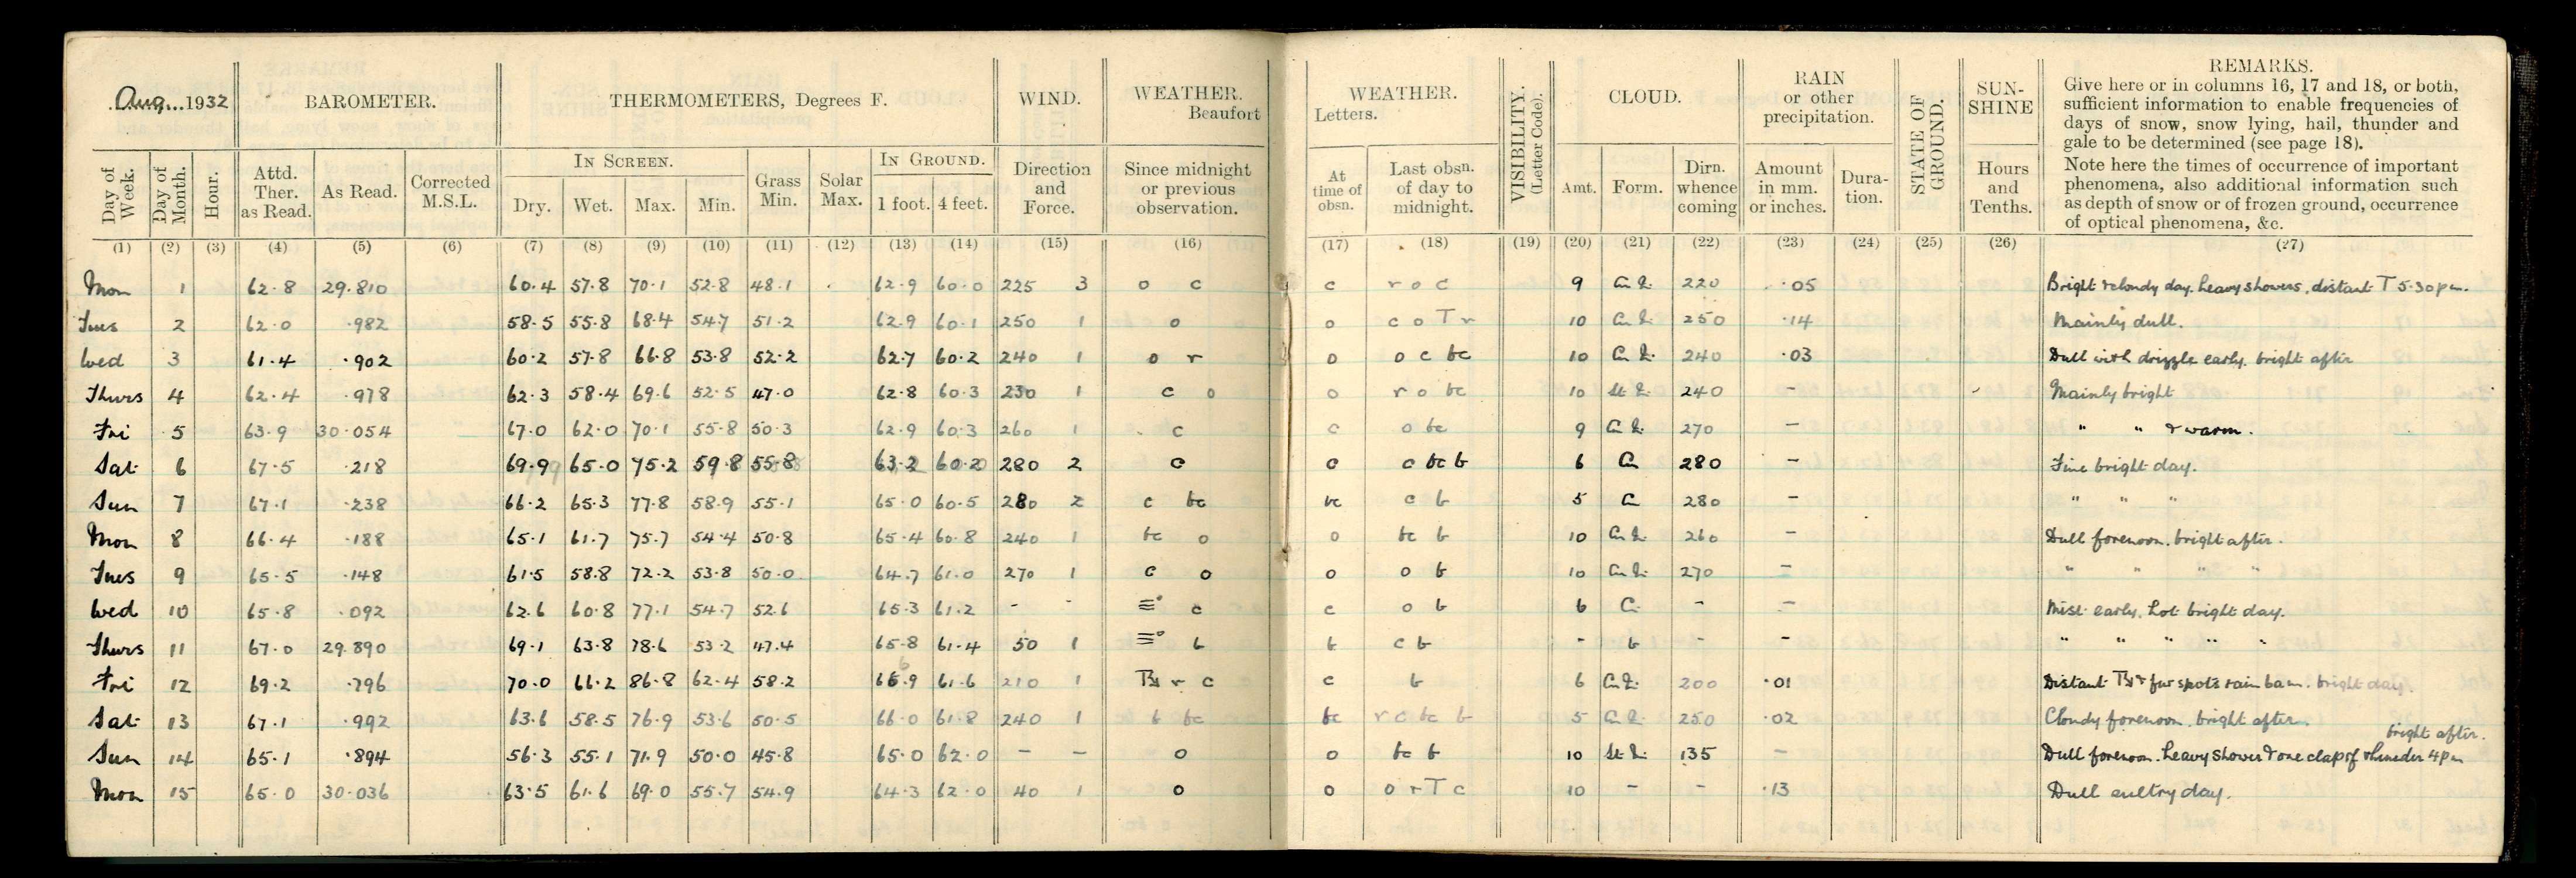 Aug. 1932 BAROMETER. THERMOMETERS, Degrees F. WIND. WEATHER. Beaufort WEATHER. Letters. VISIBILITY. (Letter Code). CLOUD. RAIN or other precipitation. STATE OF GROUND. SUN-SHINE REMARKS.
Give here or in columns 16, 17 and 18, or both,
sufficient information to enable frequencies of
days of snow, snow lying, hail, thunder and
gale to be determined (see page 18).
Note here the times of occurrence of important
phenomena, also additional information such
as depth of snow or of frozen ground, occurrence
of optical phenomena, &c.
IN SCREEN. IN GROUND.
Day of Week. Day of Month. Hour. Attd. Ther. as Read. As Read. Corrected M.S.L. Dry. Wet. Max. Min. Grass Min. Solar Max. 1 foot. 4 feet. Direction and Force. Since midnight or previous observation. At time of obsn. Last obsn. of day to midnight. Amt. Form. Dirn. whence coming Amount in mm. or inches. Dura-tion. Hours and Tenths.
(1) (2) (3) (4) (5) (6) (7) (8) (9) (10) (11) (12) (13) (14) (15) (16) (17) (18) (19) (20) (21) (22) (23) (24) (25) (26) (27)
Mon 1 62.8 29.810 60.4 57.8 70.1 52.8 48.1 62.9 60.0 225 3 o c c r o c 9 220 .05 Bright & cloudy day. heavy showers, distant T 5.30 pm.
Tues 2 62.0 .982 58.5 55.8 68.4 54.7 51.2 62.9 60.1 250 1 o o c o T r 10 250 .14 Mainly dull.
Wed 3 61.4 .902 60.2 57.8 66.8 53.8 52.2 62.7 60.2 240 1 o r o o c bc 10 240 .03 Dull with drizzle early. bright after
Thurs 4 62.4 .978 62.3 58.4 69.6 52.5 47.0 62.8 60.3 230 1 c o o r o bc 10 240 - Mainly bright
Fri 5 63.9 30.054 67.0 62.0 70.1 55.8 50.3 62.9 60.3 260 1 c c o bc 9 270 - " " & warm.
Sat 6 67.5 .218 69.9 65.0 75.2 59.8 55.8 63.2 60.2 280 2 c c c bc b 6 Cu 280 - Fine bright day.
Sun 7 67.1 .238 66.2 65.3 77.8 58.9 55.1 65.0 60.5 280 2 c bc bc c b 5 280 - " " "
Mon 8 66.4 .188 65.1 61.7 75.7 54.4 50.8 65.4 60.8 240 1 bc o o bc b 10 260 - Dull forenoon. bright after.
Tues 9 65.5 .148 61.5 58.8 72.2 53.8 50.0 64.7 61.0 270 1 c o o o b 10 270 - " " " "
Wed 10 65.8 .092 62.6 60.8 77.1 54.7 52.6 65.3 61.2 - - ≡° c c o b 6 - - Mist early. hot bright day.
Thurs 11 67.0 29.890 69.1 63.8 78.6 53.2 47.4 65.8 61.4 50 1 ≡° b b c b - b - - " " " " "
Fri 12 69.2 .796 70.0 66.2 86.8 62.4 58.2 66.9 61.6 210 1 r c c b 6 200 .01 Distant & few spots rain 6am. bright day.
Sat 13 67.1 .992 63.6 58.5 76.9 53.6 50.5 66.0 61.8 240 1 b bc bc r c bc b 5 250 .02 Cloudy forenoon. bright after.
Sun 14 65.1 .894 56.3 55.1 71.9 50.0 45.8 65.0 62.0 - - o o bc b 10 135 - Dull forenoon. heavy shower & one clap of thunder 4pm bright after.
Mon 15 65.0 30.036 63.5 61.6 69.0 55.7 54.9 64.3 62.0 40 1 o o o r T c 10 - - .13 Dull sultry day.